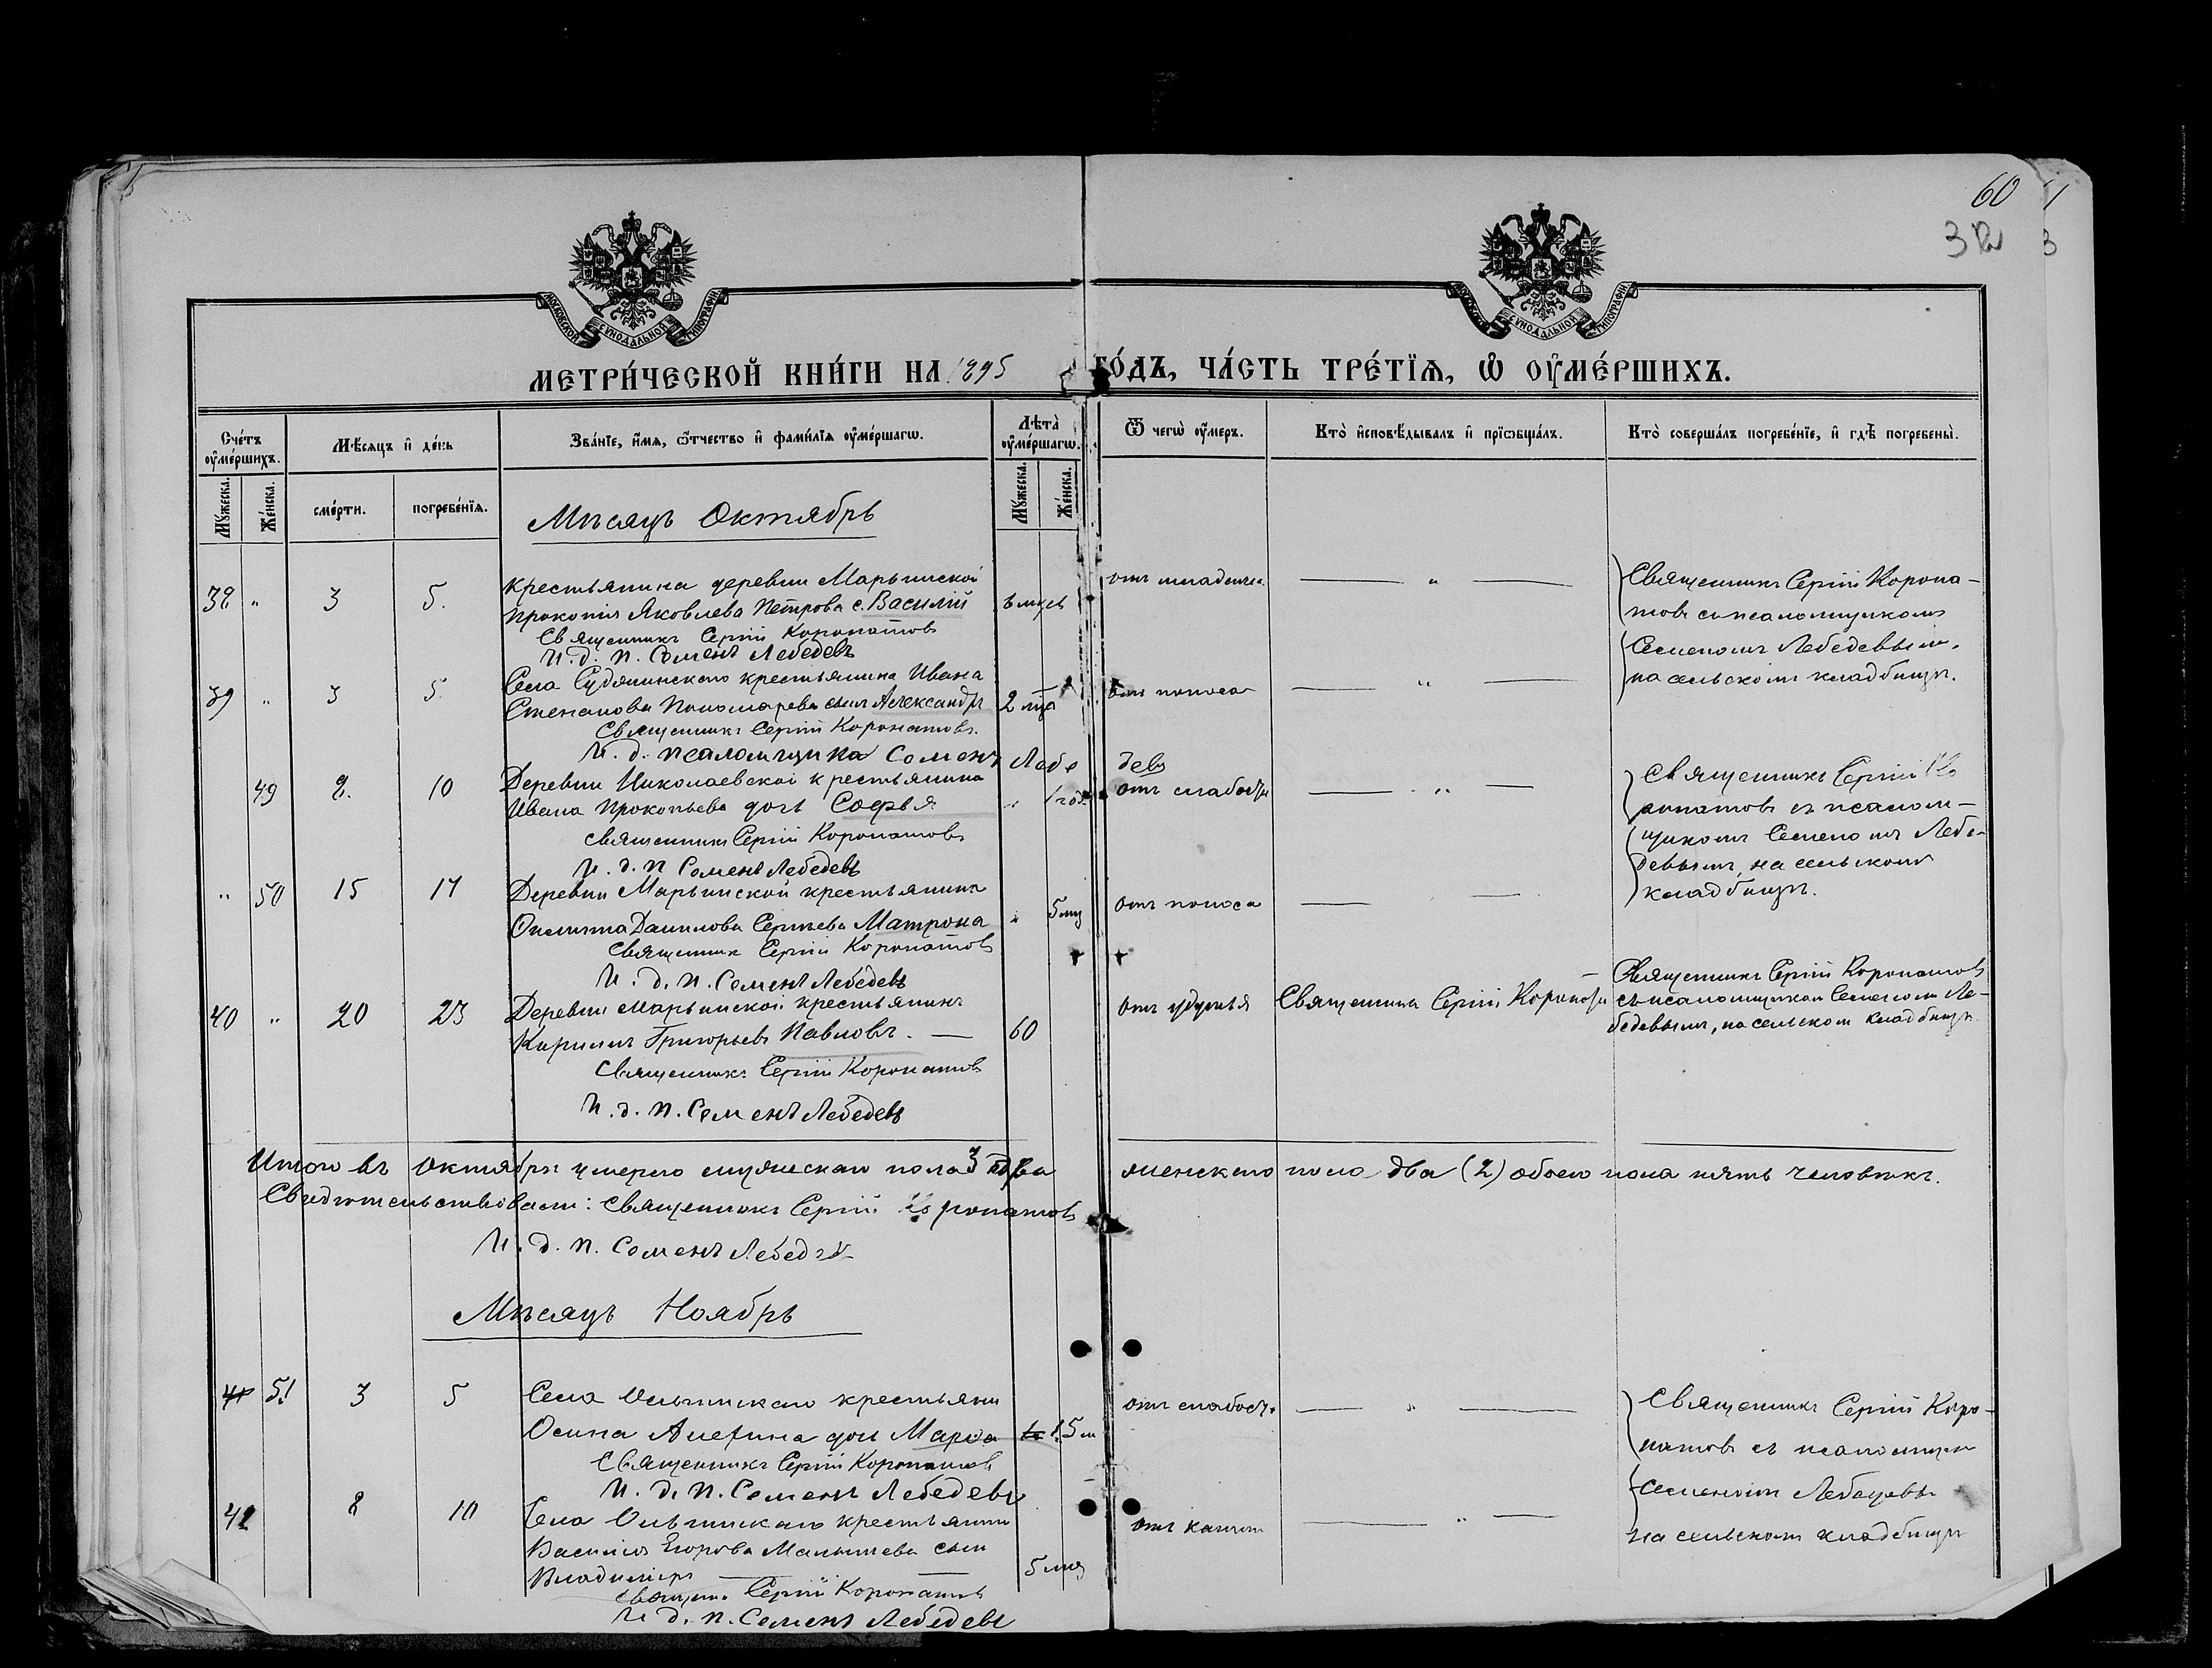 60
3
МОСКОВСКОЙ СУНОДАЛЬНОЙ ТИПОГРАФІИ
МОСКОВСКОЙ СУНОДАЛЬНОЙ ТИПОГРАФІИ
МЕТРИ́ЧЕСКОЙ КНИ́ГИ НА 1895 ГО́ДЪ, ЧА́СТЬ ТРЕ́ТЇѦ, Ѡ҆ ОУ҆МЕ́РШИХЪ.
Сче́тъ оу҆ме́ршихъ.
Мѣ́сяцъ и҆ де́нь
Зва́нїе, и҆́мѧ, ѻ҆́тчество и҆ фами́лїѧ оу҆ме́ршагѡ.
Лѣ́та оу҆ме́ршагѡ.
Ѿ чегѡ̀ оу҆́меръ.
Кто̀ и҆сповѣ́дывалъ и҆ прїѡбща́лъ.
Кто̀ соверша́лъ погребе́нїе, и҆ гдѣ̀ погребены̀.
Мꙋ́жеска.
Же́нска.
сме́рти.
погребе́нїѧ.
Мꙋ́жеска.
Же́нска.
Мѣсяцъ Октябрь
38 " 3 5. Крестьянина деревни Марьинской
Прокопія Яковлева Петрова с. Василій
Священникъ Сергій Коронатовъ
И. д. п. Семенъ Лебедевъ
отъ младенч. — " —
Священникъ Сергій Корона-
товъ съ псаломщикомъ
Семеномъ Лебедевымъ,
на сельскомъ кладбищѣ.
39 " 3 5. Села крестьянина Ивана
Степанова Пономарева сынъ Александръ 2 мца
Священникъ Сергій Коронатовъ.
И. д. псаломщика Семенъ Лебе девъ
отъ поноса — " —
49 8. 10 Деревни Николаевской крестьянина
Ивана Прокопьева дочь Софья " 1 год.
Священникъ Сергій Коронатовъ
И. д. п Семенъ Лебедевъ
отъ слабости — " —
Священникъ Сергій Ко
ронатовъ съ псалом-
щикомъ Семеномъ Лебе-
девымъ, на сельскомъ
кладбищѣ.
" 50 15 17 Деревни Марьинской крестьянина
Данилова Сергѣева Матрона " 5 мц
Священникъ Сергій Коронатовъ
И. д. п. Семенъ Лебедевъ
отъ поноса — —
40 " 20 23 Деревни Марьинской крестьянинъ
Кириллъ Григорьевъ Павловъ. — 60
Священникъ Сергій Коронатовъ
И. д. п. Семенъ Лебедевъ
отъ удушья Священникъ Сергій Коронатовъ
Священникъ Сергій Коронатовъ
съ псаломщикомъ Семеномъ Ле-
бедевымъ, на сельскомъ кладбищѣ.
Итого въ Октябрѣ умерло мужескаго пола 3 женскаго пола два (2) обоего пола пять человѣкъ.
Свидѣтельствовали: Священникъ Сергій Коронатовъ
И. д. п. Семенъ Лебедевъ
Мѣсяцъ Ноябрь
41 51 3 5 Села Ольгинскаго крестьяни
Осипа дочь Марѳа 1. 5 м
Священникъ Сергій Коронатовъ
И. д. п. Семенъ Лебедевъ
отъ слабости — " —
Священникъ Сергій Коро-
натовъ съ псаломщик
Семеномъ Лебедевы
на сельскомъ кладбищѣ
42 8 10 Села Ольгинскаго крестьянин
Василія Егорова Малышева сынъ
Владиміръ — 5 мц
Священ. Сергій Коронатовъ
И д. п. Семенъ Лебедевъ
отъ кашля — " —